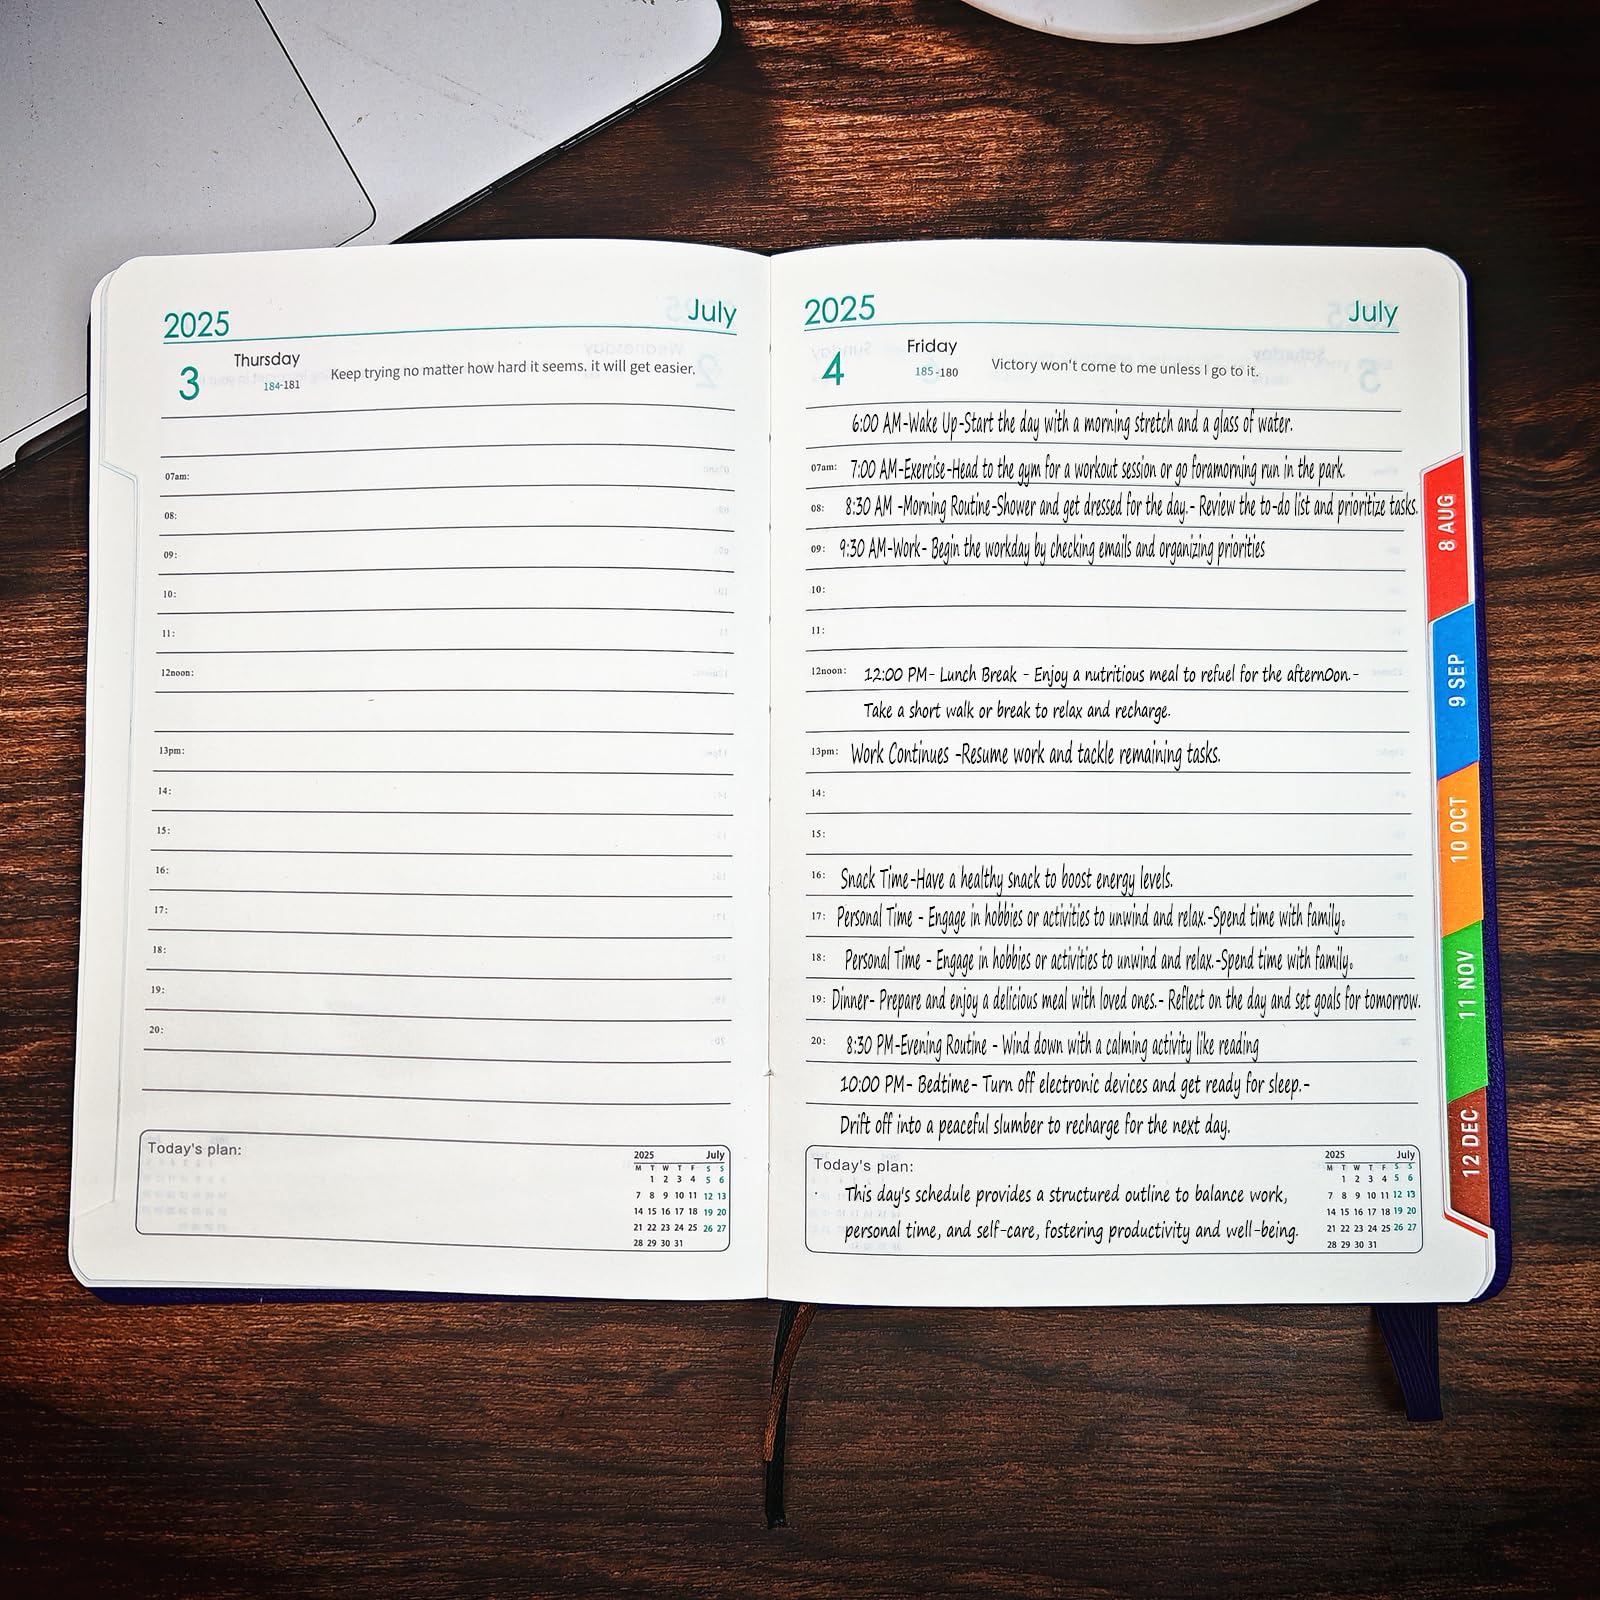 2025 July
3 Thursday
184-181
Keep trying no matter how hard it seems. it will get easier.
07am:
08:
09:
10:
11:
12noon:
13pm:
14:
15:
16:
17:
18:
19:
20:
Today's plan:
2025 July
M T W T F S S
1 2 3 4 5 6
7 8 9 10 11 12 13
14 15 16 17 18 19 20
21 22 23 24 25 26 27
28 29 30 31
2025 July
4 Friday
185-180
Victory won't come to me unless I go to it.
6:00 AM-Wake Up-Start the day with a morning stretch and a glass of water.
07am: 7:00 AM-Exercise-Head to the gym for a workout session or go foramorning run in the park.
08: 8:30 AM -Morning Routine-Shower and get dressed for the day.- Review the to-do list and prioritize tasks.
09: 9:30 AM-Work- Begin the workday by checking emails and organizing priorities
10:
11:
12noon: 12:00 PM- Lunch Break - Enjoy a nutritious meal to refuel for the aftern0on.-
Take a short walk or break to relax and recharge.
13pm: Work Continues -Resume work and tackle remaining tasks.
14:
15:
16: Snack Time-Have a healthy snack to boost energy levels.
17: Personal Time - Engage in hobbies or activities to unwind and relax.-Spend time with family。
18: Personal Time - Engage in hobbies or activities to unwind and relax.-Spend time with family。
19: Dinner- Prepare and enjoy a delicious meal with loved ones.- Reflect on the day and set goals for tomorrow.
20: 8:30 PM-Evening Routine - Wind down with a calming activity like reading
10:00 PM- Bedtime- Turn off electronic devices and get ready for sleep.-
Drift off into a peaceful slumber to recharge for the next day.
Today's plan:
This day's schedule provides a structured outline to balance work,
personal time, and self-care, fostering productivity and well-being.
2025 July
M T W T F S S
1 2 3 4 5 6
7 8 9 10 11 12 13
14 15 16 17 18 19 20
21 22 23 24 25 26 27
28 29 30 31
8 AUG
9 SEP
10 OCT
11 NOV
12 DEC